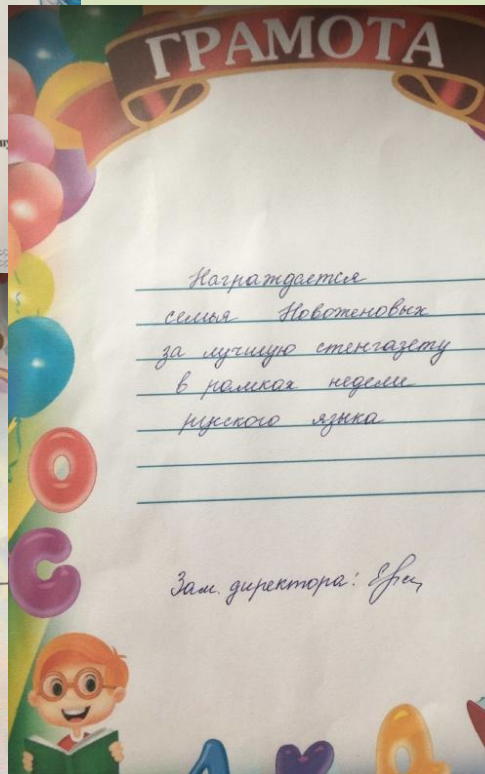 ГРАМОТА
Награждается
семья Новоженовых
за лучшую стенгазету
в рамках недели
русского языка
Зам. директора:
О
С